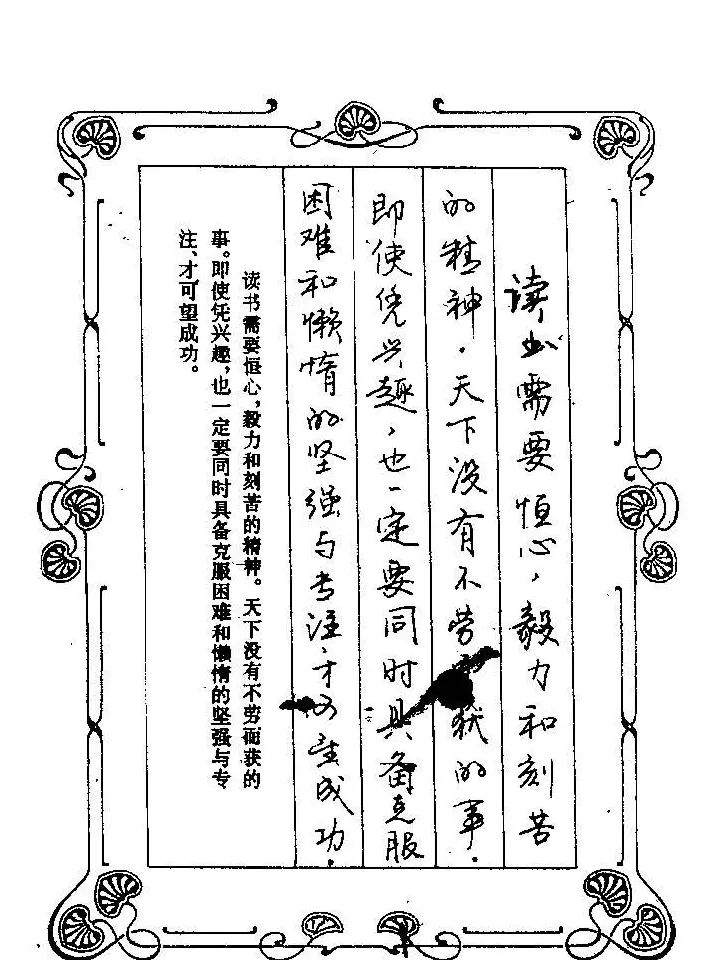 读书需要恒心，毅力和刻苦
的精神。天下没有不劳获的事。
即使凭兴趣，也一定要同时具备克服
困难和懒惰的坚强与专注才可望成功。
读书需要恒心，毅力和刻苦的精神。天下没有不劳而获的
事。即使凭兴趣，也一定要同时具备克服困难和懒惰的坚强与专
注、才可望成功。